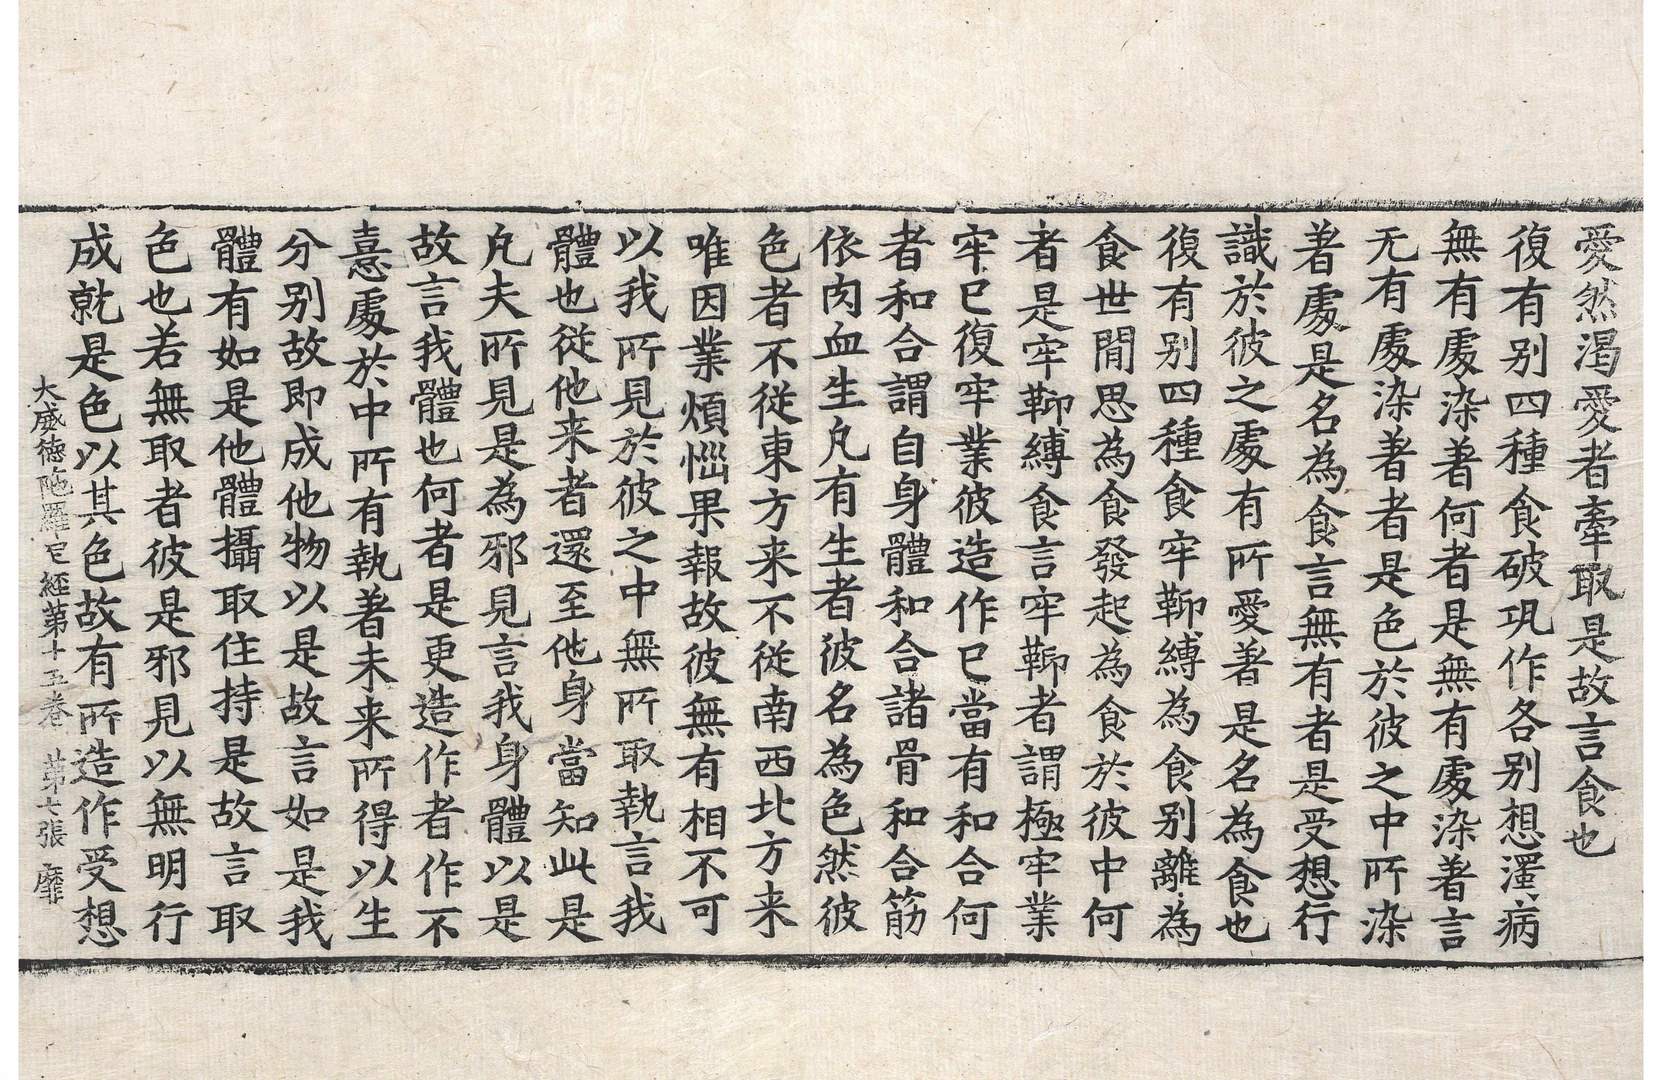 愛然渴愛者牽取是故言食也
復有別四種食破巩作各別想濹病
無有處染著何者是無有處染著言
无有處染著者是色於彼之中所染
著處是名為食言無有者是受想行
識於彼之處有所愛著是名為食也
復有別四種食牢鞕縛為食別離為
食世間思為食發起為食於彼中何
者是牢鞕縛食言牢鞕者謂極牢業
牢已復牢業彼造作已當有和合何
者和合謂自身體和合諸骨和合筋
依肉血生凡有生者彼名為色然彼
色者不從東方来不從南西北方来
唯因業煩惱果報故彼無有相不可
以我所見於彼之中無所取執言我
體也從他来者還至他身當知此是
凡夫所見是為邪見言我身體以是
故言我體也何者是更造作者作不
憙處於中所有執著未来所得以生
分別故即成他物以是故言如是我
體有如是他體攝取住持是故言取
色也若無取者彼是邪見以無明行
成就是色以其色故有所造作受想
大威德陁羅尼經第十五卷 第七張 靡